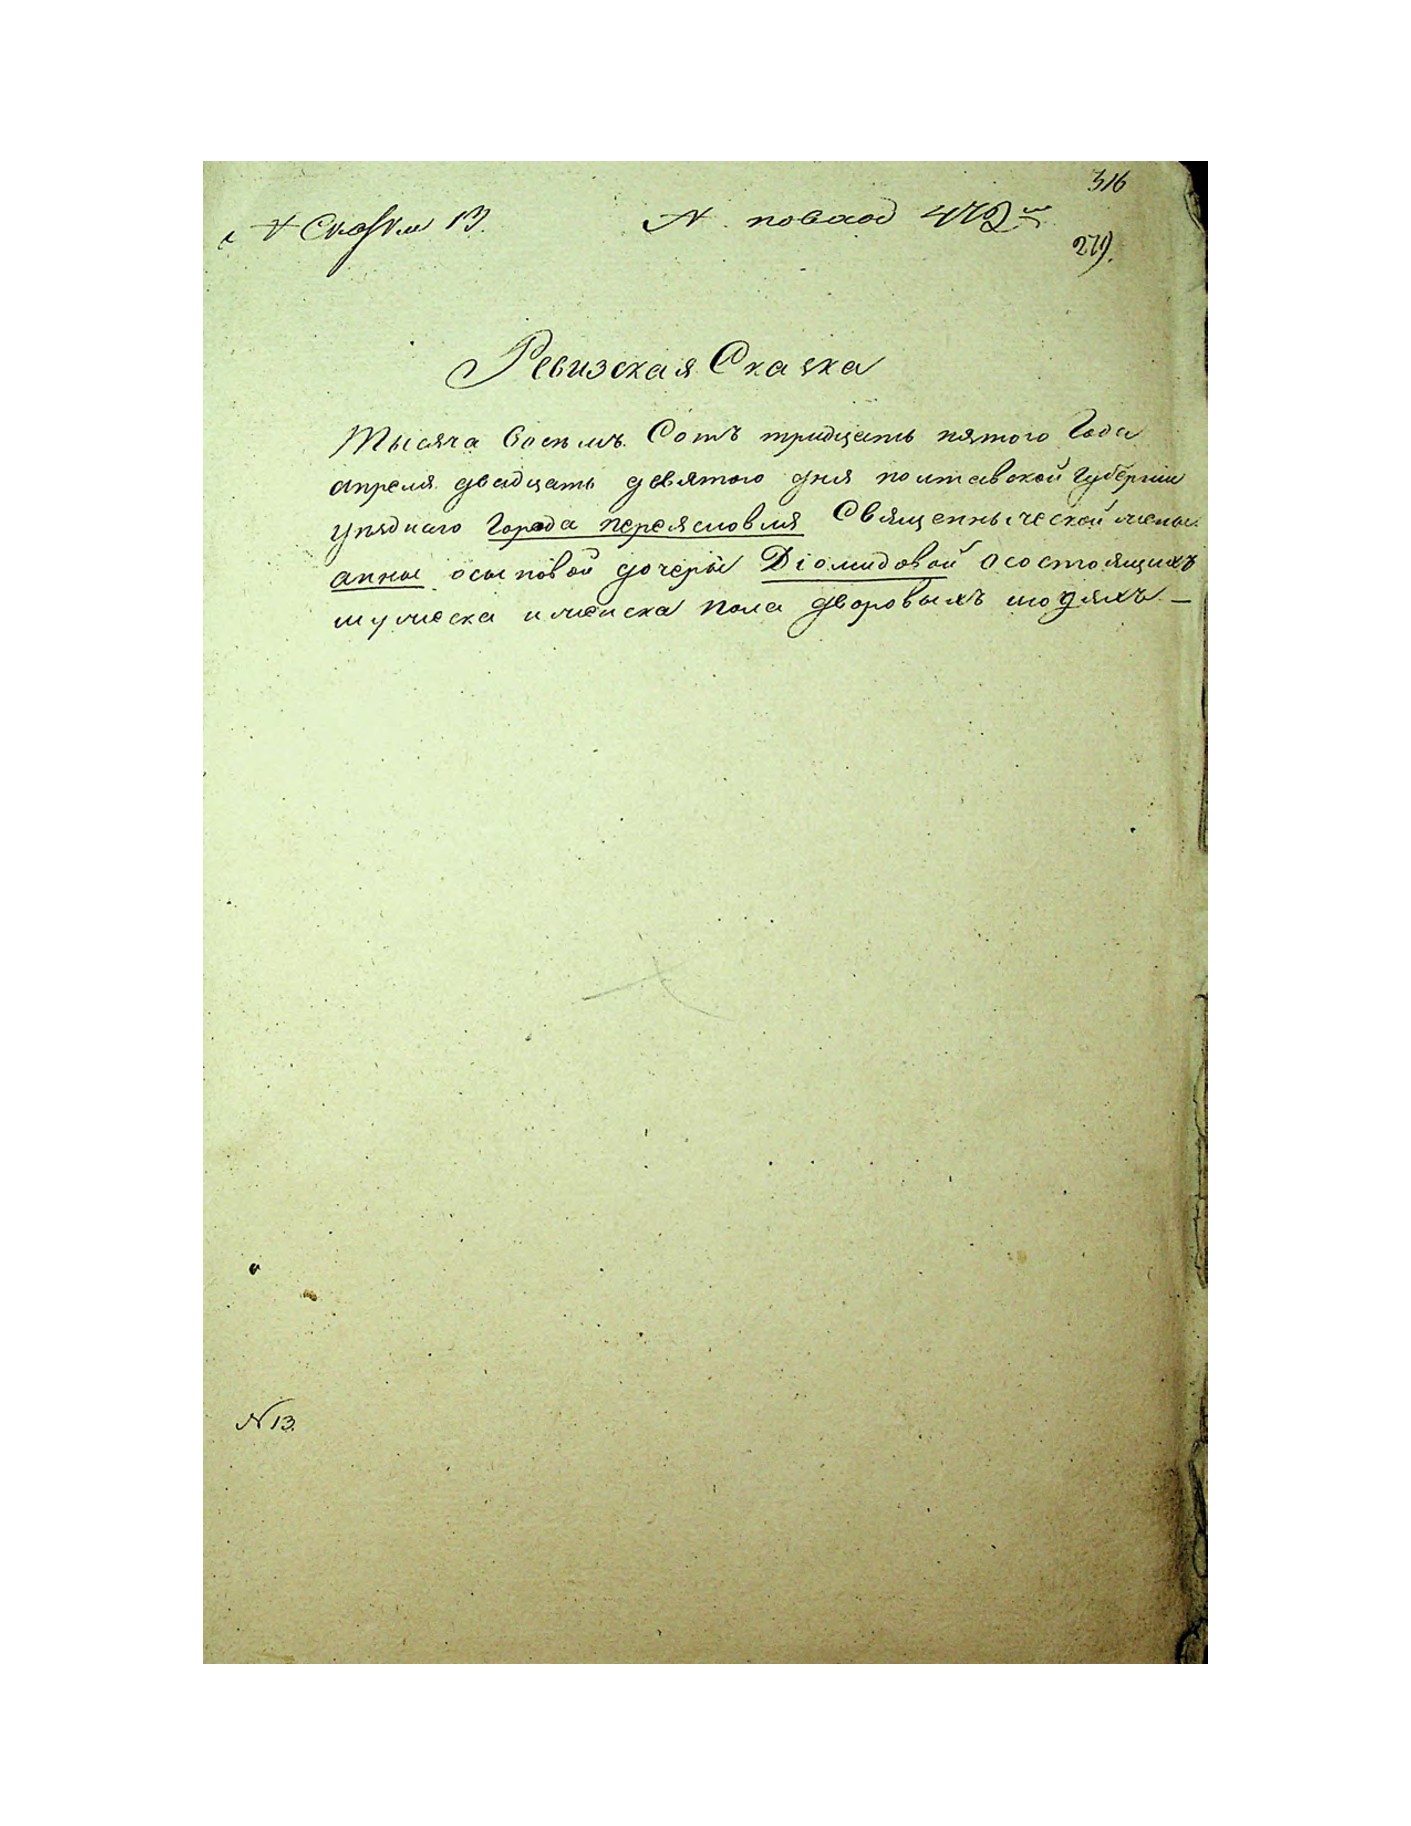 316
13.
N 472
279.
Ревизская Сказка
Тысяча восемъ Сотъ тридцать пятого Года
апреля двадцать девятого дня полтавской Губернии
уездного Города переясловля Священнической жены
анны осиповой дочери Діомидовой осостоящихъ
мужеска и женска пола дворовыхъ людяхъ –
N 13.